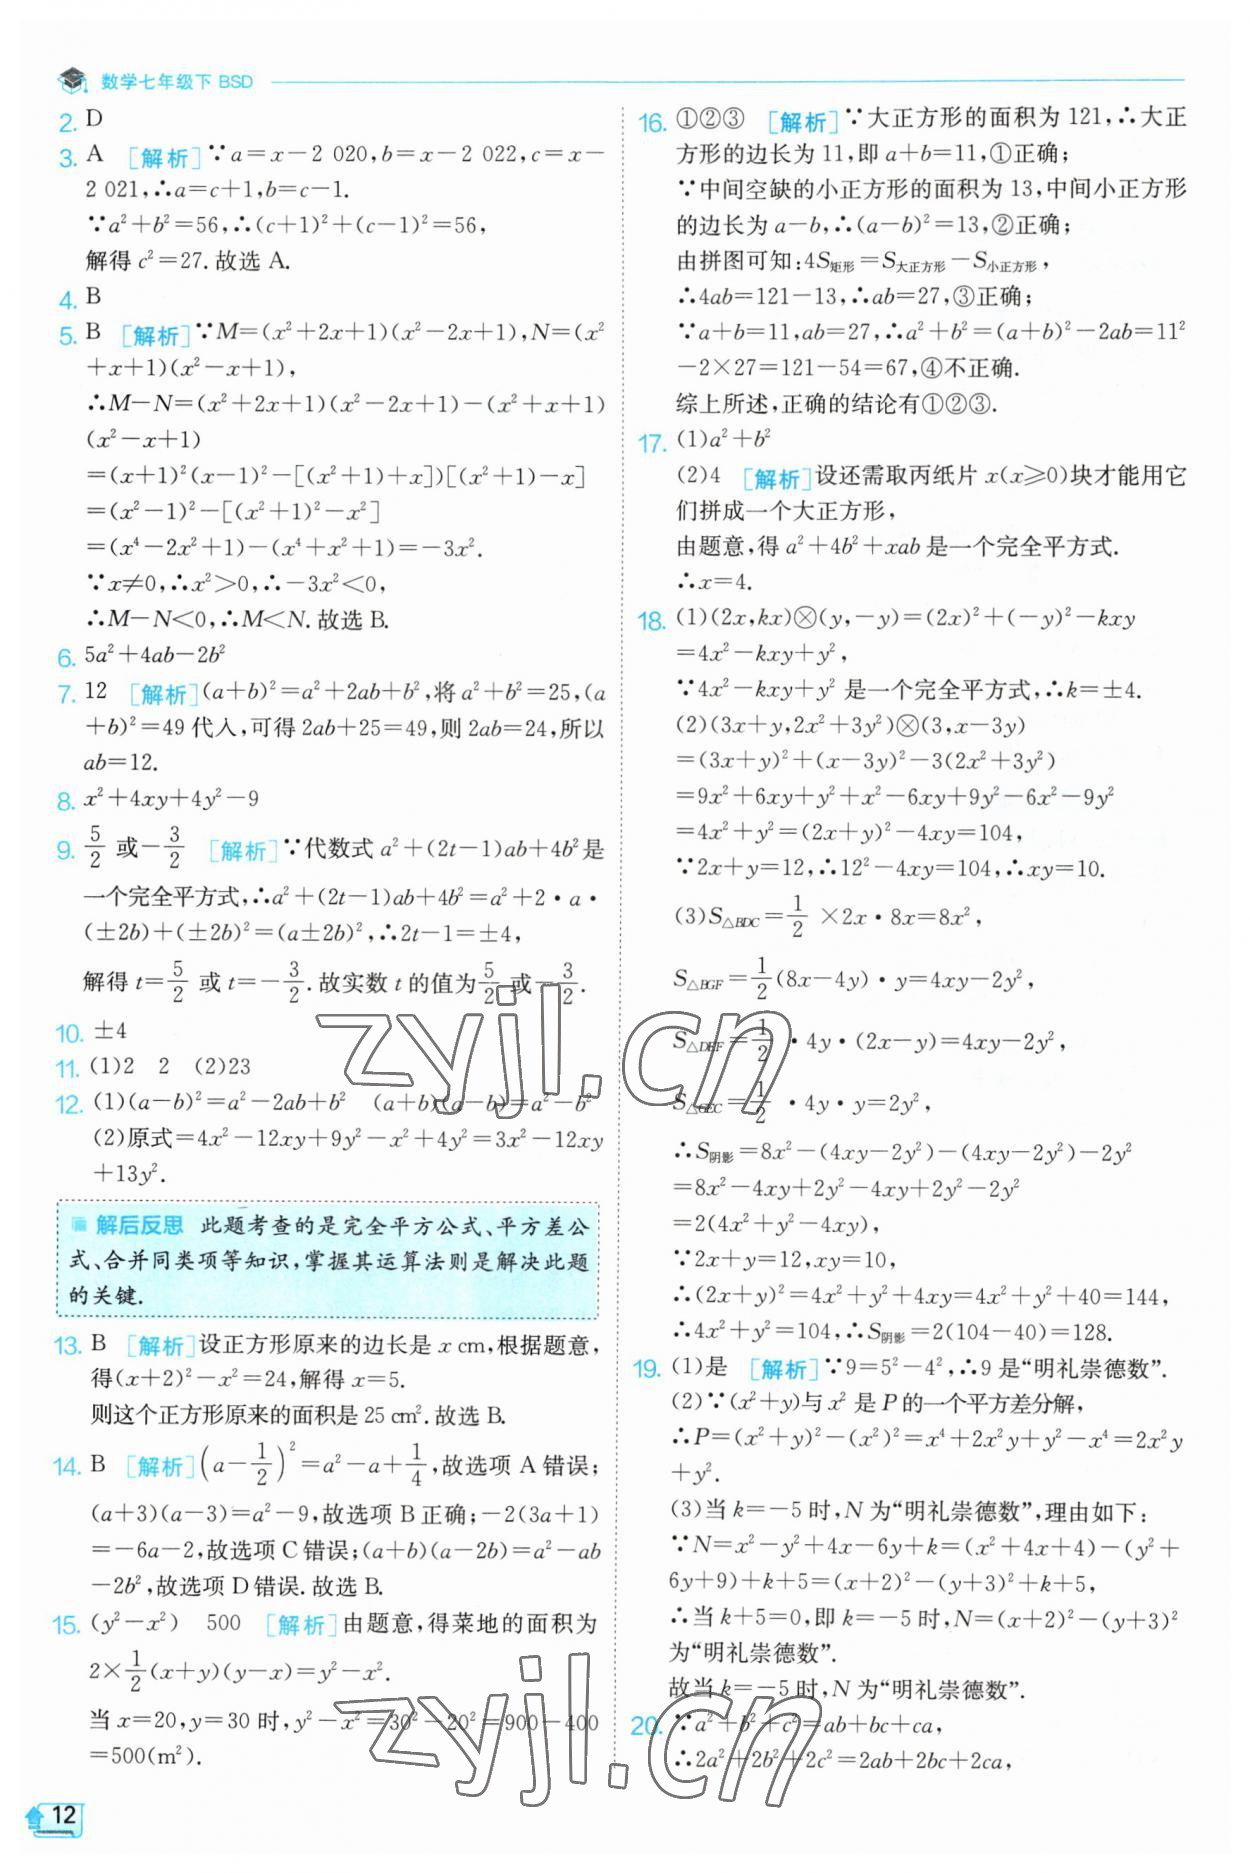 数学七年级下 BSD
2. D
3. A [解析]∵a=x-2 020,b=x-2 022,c=x-
2 021,∴a=c+1,b=c-1.
∵a²+b²=56,∴(c+1)²+(c-1)²=56,
解得 c²=27.故选 A.
4. B
5. B [解析]∵M=(x²+2x+1)(x²-2x+1),N=(x²
+x+1)(x²-x+1),
∴M-N=(x²+2x+1)(x²-2x+1)-(x²+x+1)
(x²-x+1)
=(x+1)²(x-1)²-[(x²+1)+x])[(x²+1)-x]
=(x²-1)²-[(x²+1)²-x²]
=(x⁴-2x²+1)-(x⁴+x²+1)=-3x².
∵x≠0,∴x²>0,∴-3x²<0,
∴M-N<0,∴M<N.故选 B.
6. 5a²+4ab-2b²
7. 12 [解析](a+b)²=a²+2ab+b²,将 a²+b²=25,(a
+b)²=49 代入,可得 2ab+25=49,则 2ab=24,所以
ab=12.
8. x²+4xy+4y²-9
9. 5/2 或-3/2 [解析]∵代数式 a²+(2t-1)ab+4b²是
一个完全平方式,∴a²+(2t-1)ab+4b²=a²+2·a·
(±2b)+(±2b)²=(a±2b)²,∴2t-1=±4,
解得 t=5/2 或 t=-3/2.故实数 t 的值为5/2或-3/2.
10. ±4
11. (1)2 2 (2)23
12. (1)(a-b)²=a²-2ab+b² (a+b)(a-b)=a²-b²
(2)原式=4x²-12xy+9y²-x²+4y²=3x²-12xy
+13y².
解后反思 此题考查的是完全平方公式、平方差公
式、合并同类项等知识,掌握其运算法则是解决此题
的关键.
13. B [解析]设正方形原来的边长是 x cm,根据题意,
得(x+2)²-x²=24,解得 x=5.
则这个正方形原来的面积是 25 cm².故选 B.
14. B [解析](a-1/2)²=a²-a+1/4,故选项 A 错误;
(a+3)(a-3)=a²-9,故选项 B 正确;-2(3a+1)
=-6a-2,故选项 C 错误;(a+b)(a-2b)=a²-ab
-2b²,故选项 D 错误.故选 B.
15. (y²-x²) 500 [解析]由题意,得菜地的面积为
2×1/2(x+y)(y-x)=y²-x².
当 x=20,y=30 时,y²-x²=30²-20²=900-400
=500(m²).
16. ①②③ [解析]∵大正方形的面积为 121,∴大正
方形的边长为 11,即 a+b=11,①正确;
∵中间空缺的小正方形的面积为 13,中间小正方形
的边长为 a-b,∴(a-b)²=13,②正确;
由拼图可知:4S矩形=S大正方形-S小正方形,
∴4ab=121-13,∴ab=27,③正确;
∵a+b=11,ab=27,∴a²+b²=(a+b)²-2ab=11²
-2×27=121-54=67,④不正确.
综上所述,正确的结论有①②③.
17. (1)a²+b²
(2)4 [解析]设还需取丙纸片 x(x≥0)块才能用它
们拼成一个大正方形,
由题意,得 a²+4b²+xab 是一个完全平方式.
∴x=4.
18. (1)(2x,kx)⊗(y,-y)=(2x)²+(-y)²-kxy
=4x²-kxy+y²,
∵4x²-kxy+y² 是一个完全平方式,∴k=±4.
(2)(3x+y,2x²+3y²)⊗(3,x-3y)
=(3x+y)²+(x-3y)²-3(2x²+3y²)
=9x²+6xy+y²+x²-6xy+9y²-6x²-9y²
=4x²+y²=(2x+y)²-4xy=104,
∵2x+y=12,∴12²-4xy=104,∴xy=10.
(3)S△BDC=1/2 ×2x·8x=8x²,
S△BGF=1/2(8x-4y)·y=4xy-2y²,
S△DEF=1/2·4y·(2x-y)=4xy-2y²,
S△GEC=1/2·4y·y=2y²,
∴S阴影=8x²-(4xy-2y²)-(4xy-2y²)-2y²
=8x²-4xy+2y²-4xy+2y²-2y²
=2(4x²+y²-4xy),
∵2x+y=12,xy=10,
∴(2x+y)²=4x²+y²+4xy=4x²+y²+40=144,
∴4x²+y²=104,∴S阴影=2(104-40)=128.
19. (1)是 [解析]∵9=5²-4²,∴9 是“明礼崇德数”.
(2)∵(x²+y)与 x² 是 P 的一个平方差分解,
∴P=(x²+y)²-(x²)²=x⁴+2x²y+y²-x⁴=2x²y
+y².
(3)当 k=-5 时,N 为“明礼崇德数”,理由如下:
∵N=x²-y²+4x-6y+k=(x²+4x+4)-(y²+
6y+9)+k+5=(x+2)²-(y+3)²+k+5,
∴当 k+5=0,即 k=-5 时,N=(x+2)²-(y+3)²
为“明礼崇德数”.
故当 k=-5 时,N 为“明礼崇德数”.
20. ∵a²+b²+c²=ab+bc+ca,
∴2a²+2b²+2c²=2ab+2bc+2ca,
12
zyjl.cn
zyjl.cn